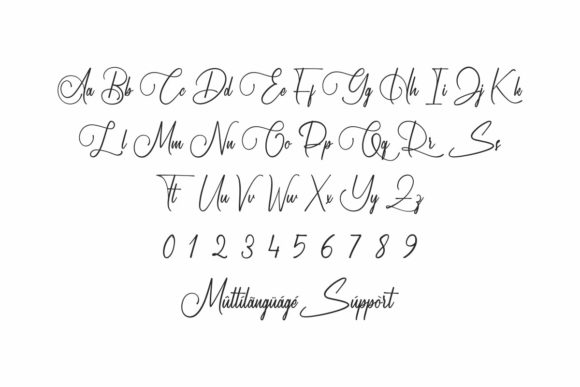 Aa Bb Cc Dd Ee Ff Gg Hh Ii Jj Kk
Ll Mm Nn Oo Pp Qq Rr Ss
Tt Uu Vv Ww Xx Yy Zz
0 1 2 3 4 5 6 7 8 9
Mûltilängüágé Súppòrt